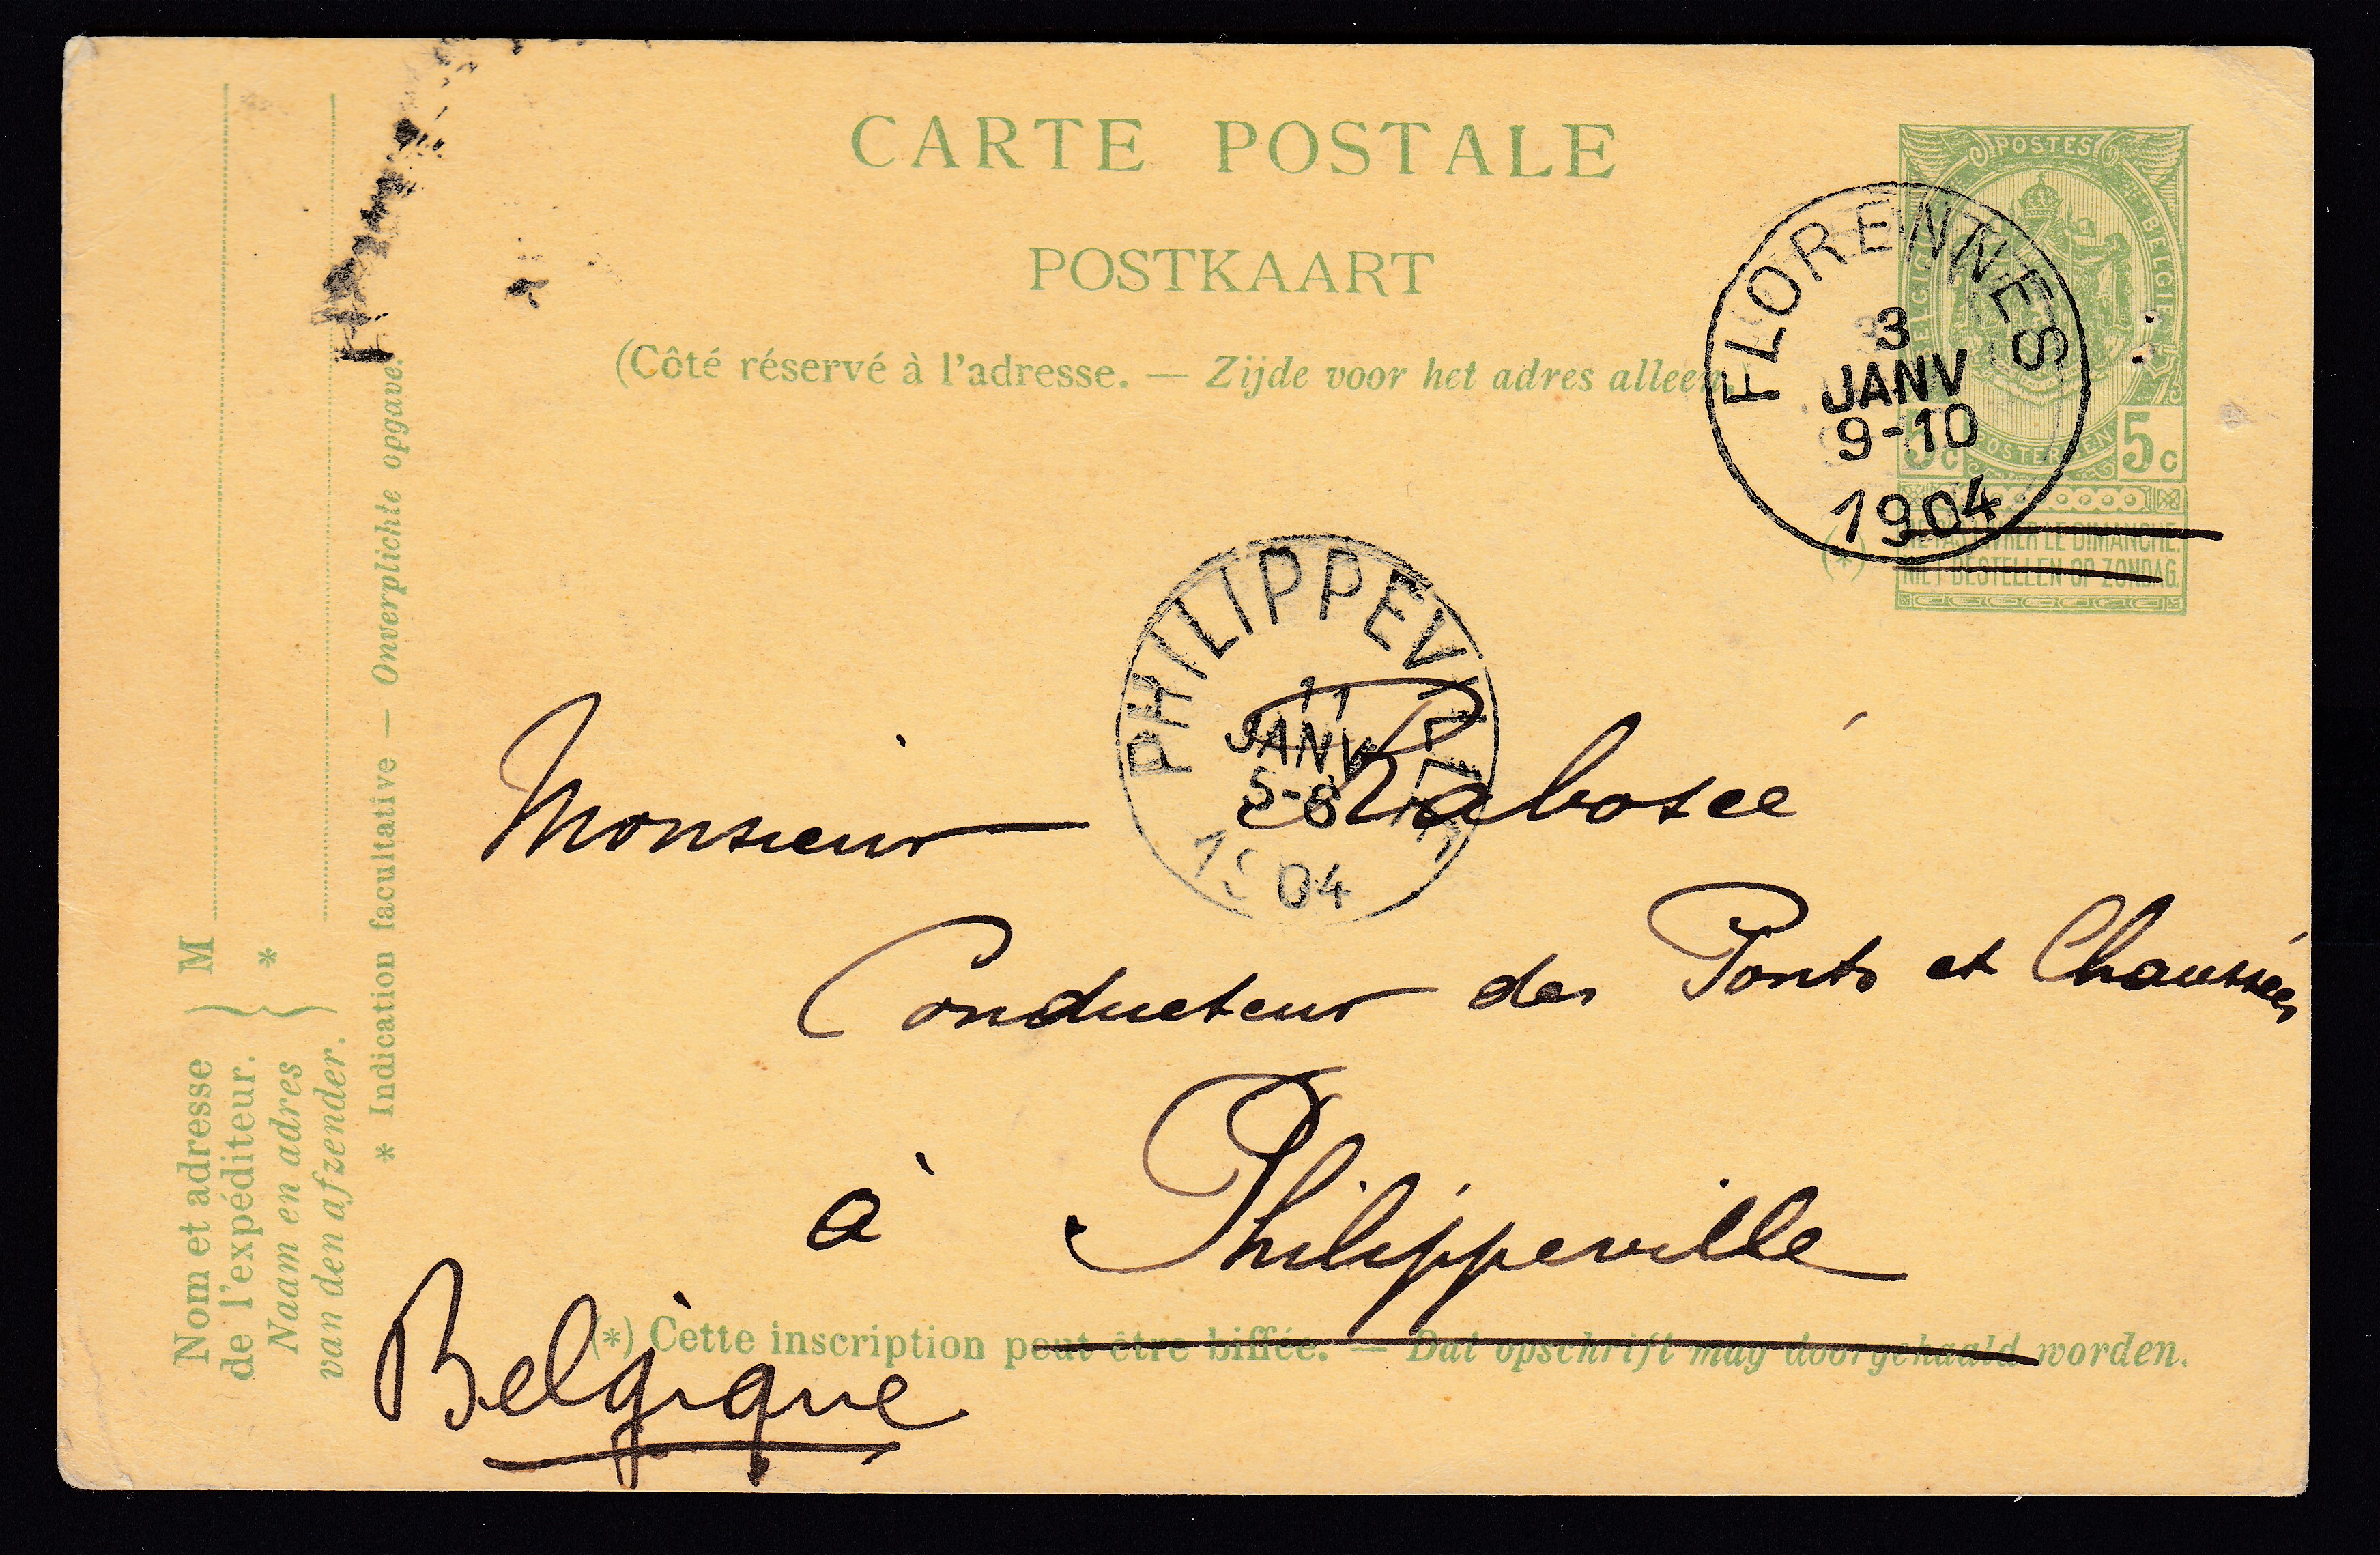 CARTE POSTALE
POSTKAART
(Côté réservé à l'adresse. — Zijde voor het adres alleen
POSTES
BELGIQUE
BELGIË
POSTERIJEN
5c 5c
NE PAS LIVRER LE DIMANCHE.
(*) NIET BESTELLEN OP ZONDAG.
FLORENNES
3
JANV
9-10
1904
PHILIPPEVILLE
11
JANV
5-6
1904
Monsieur Rabosée
Conducteur des Ponts et Chaussées
à Philippeville
Belgique
(*) Cette inscription peut être biffée. — Dat opschrift mag doorgehaald worden.
Nom et adresse
de l'expéditeur. } M
Naam en adres
van den afzender. } *
* Indication facultative — Onverplichte opgave.